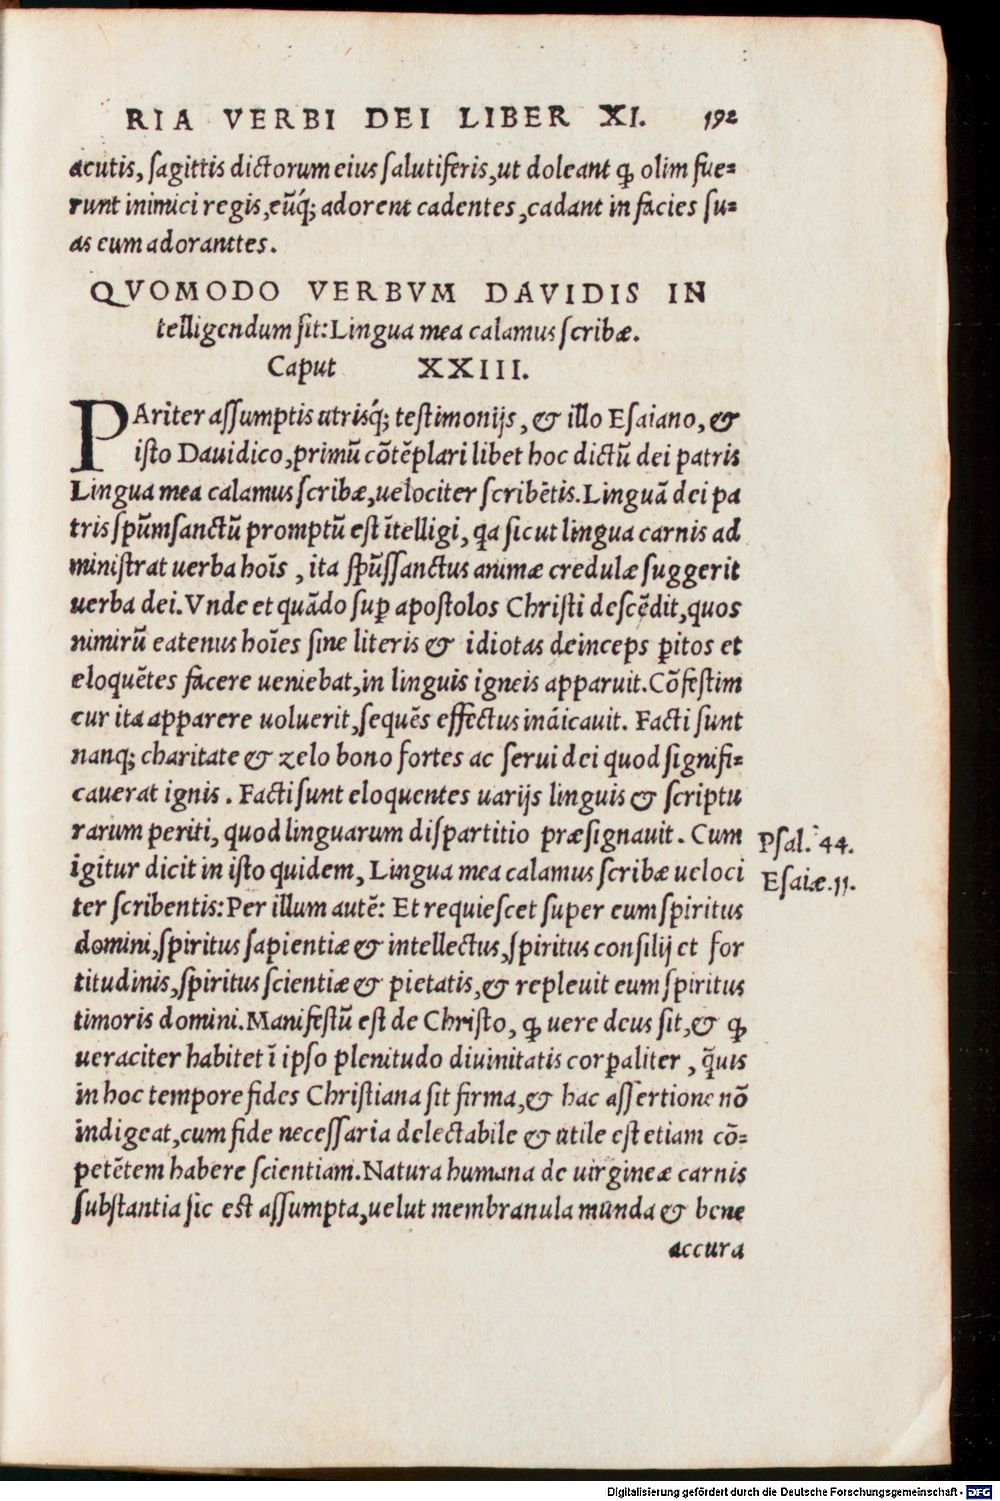 RIA VERBI DEI LIBER XI. 192
acutis, sagittis dictorum eius salutiferis, ut doleant ꝙ olim fue=
runt inimici regis, eũq́; adorent cadentes, cadant in facies su=
as cum adoranttes.
QVOMODO VERBVM DAVIDIS IN
telligendum sit: Lingua mea calamus scribæ.
Caput XXIII.
PAriter assumptis utrisq́; testimonijs, & illo Esaiano, &
isto Dauidico, primũ cõtẽplari libet hoc dictũ dei patris
Lingua mea calamus scribæ, uelociter scribẽtis. Linguã dei pa
tris spũmsanctũ promptũ est ĩtelligi, qa sicut lingua carnis ad
ministrat uerba hoĩs, ita spũssanctus animæ credulæ suggerit
uerba dei. Vnde et quãdo suꝑ apostolos Christi descẽdit, quos
nimirũ eatenus hoĩes sine literis & idiotas deinceps ꝑitos et
eloquẽtes facere ueniebat, in linguis igneis apparuit. Cõfestim
cur ita apparere uoluerit, sequẽs effectus indicauit. Facti sunt
nanq; charitate & zelo bono fortes ac serui dei quod signifi=
cauerat ignis. Facti sunt eloquentes uarijs linguis & scriptu
rarum periti, quod linguarum dispartitio præsignauit. Cum
igitur dicit in isto quidem, Lingua mea calamus scribæ ueloci
ter scribentis: Per illum autẽ: Et requiescet super eum spiritus
domini, spiritus sapientiæ & intellectus, spiritus consilij et for
titudinis, spiritus scientiæ & pietatis, & repleuit eum spiritus
timoris domini. Manifestũ est de Christo, ꝙ uere deus sit, & ꝙ
ueraciter habitet ĩ ipso plenitudo diuinitatis corꝑaliter, q̃uis
in hoc tempore fides Christiana sit firma, & hac assertione nõ
indigeat, cum fide necessaria delectabile & utile est etiam cõ=
petẽtem habere scientiam. Natura humana de uirgineæ carnis
substantia sic est assumpta, uelut membranula munda & bene
accura
Psal. 44.
Esaiæ. 11.
Digitalisierung gefördert durch die Deutsche Forschungsgemeinschaft - DFG